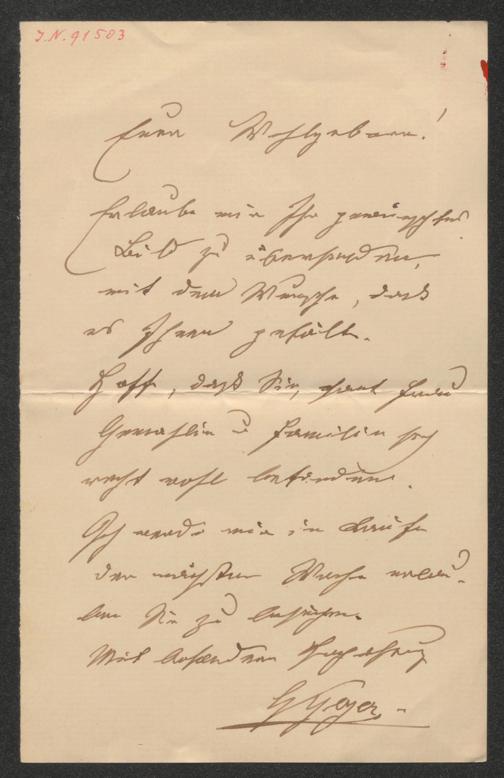 J.N. 91503
Euer Wohlgeboren!
Erlaube mir Ihr gewünschtes
Bild zu übersenden,
mit dem Wunsche, daß
es Ihnen gefällt.
Hoffe, daß Sie, samt Frau
Gemahlin u Familie sich
recht wohl befinden.
Ich werde mir im Laufe
der nächsten Woche erlau-
ben Sie zu besuchen.
Mit Hochachtung